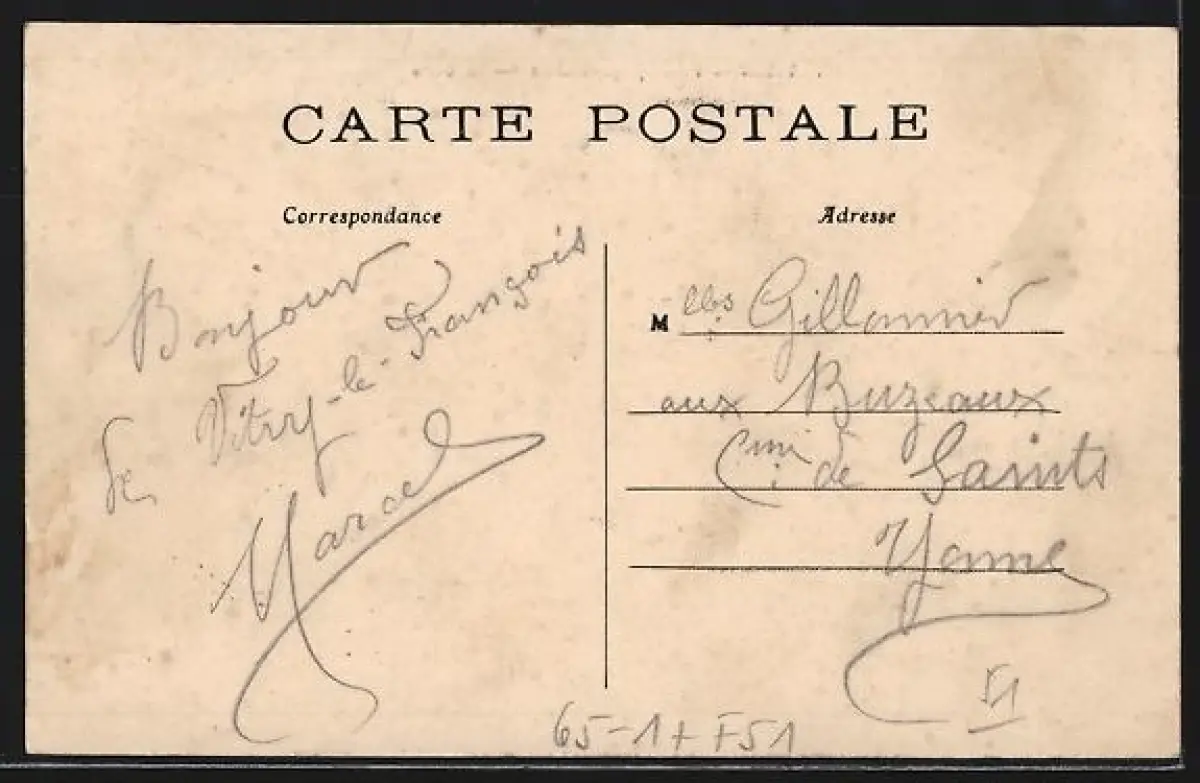 CARTE POSTALE
Correspondance
Bonjour
de Vitry-le-François
Marcel
Adresse
Melles Gillonnier
aux Buzeaux
Cne de Saints
Yonne
51
65-1+ F51